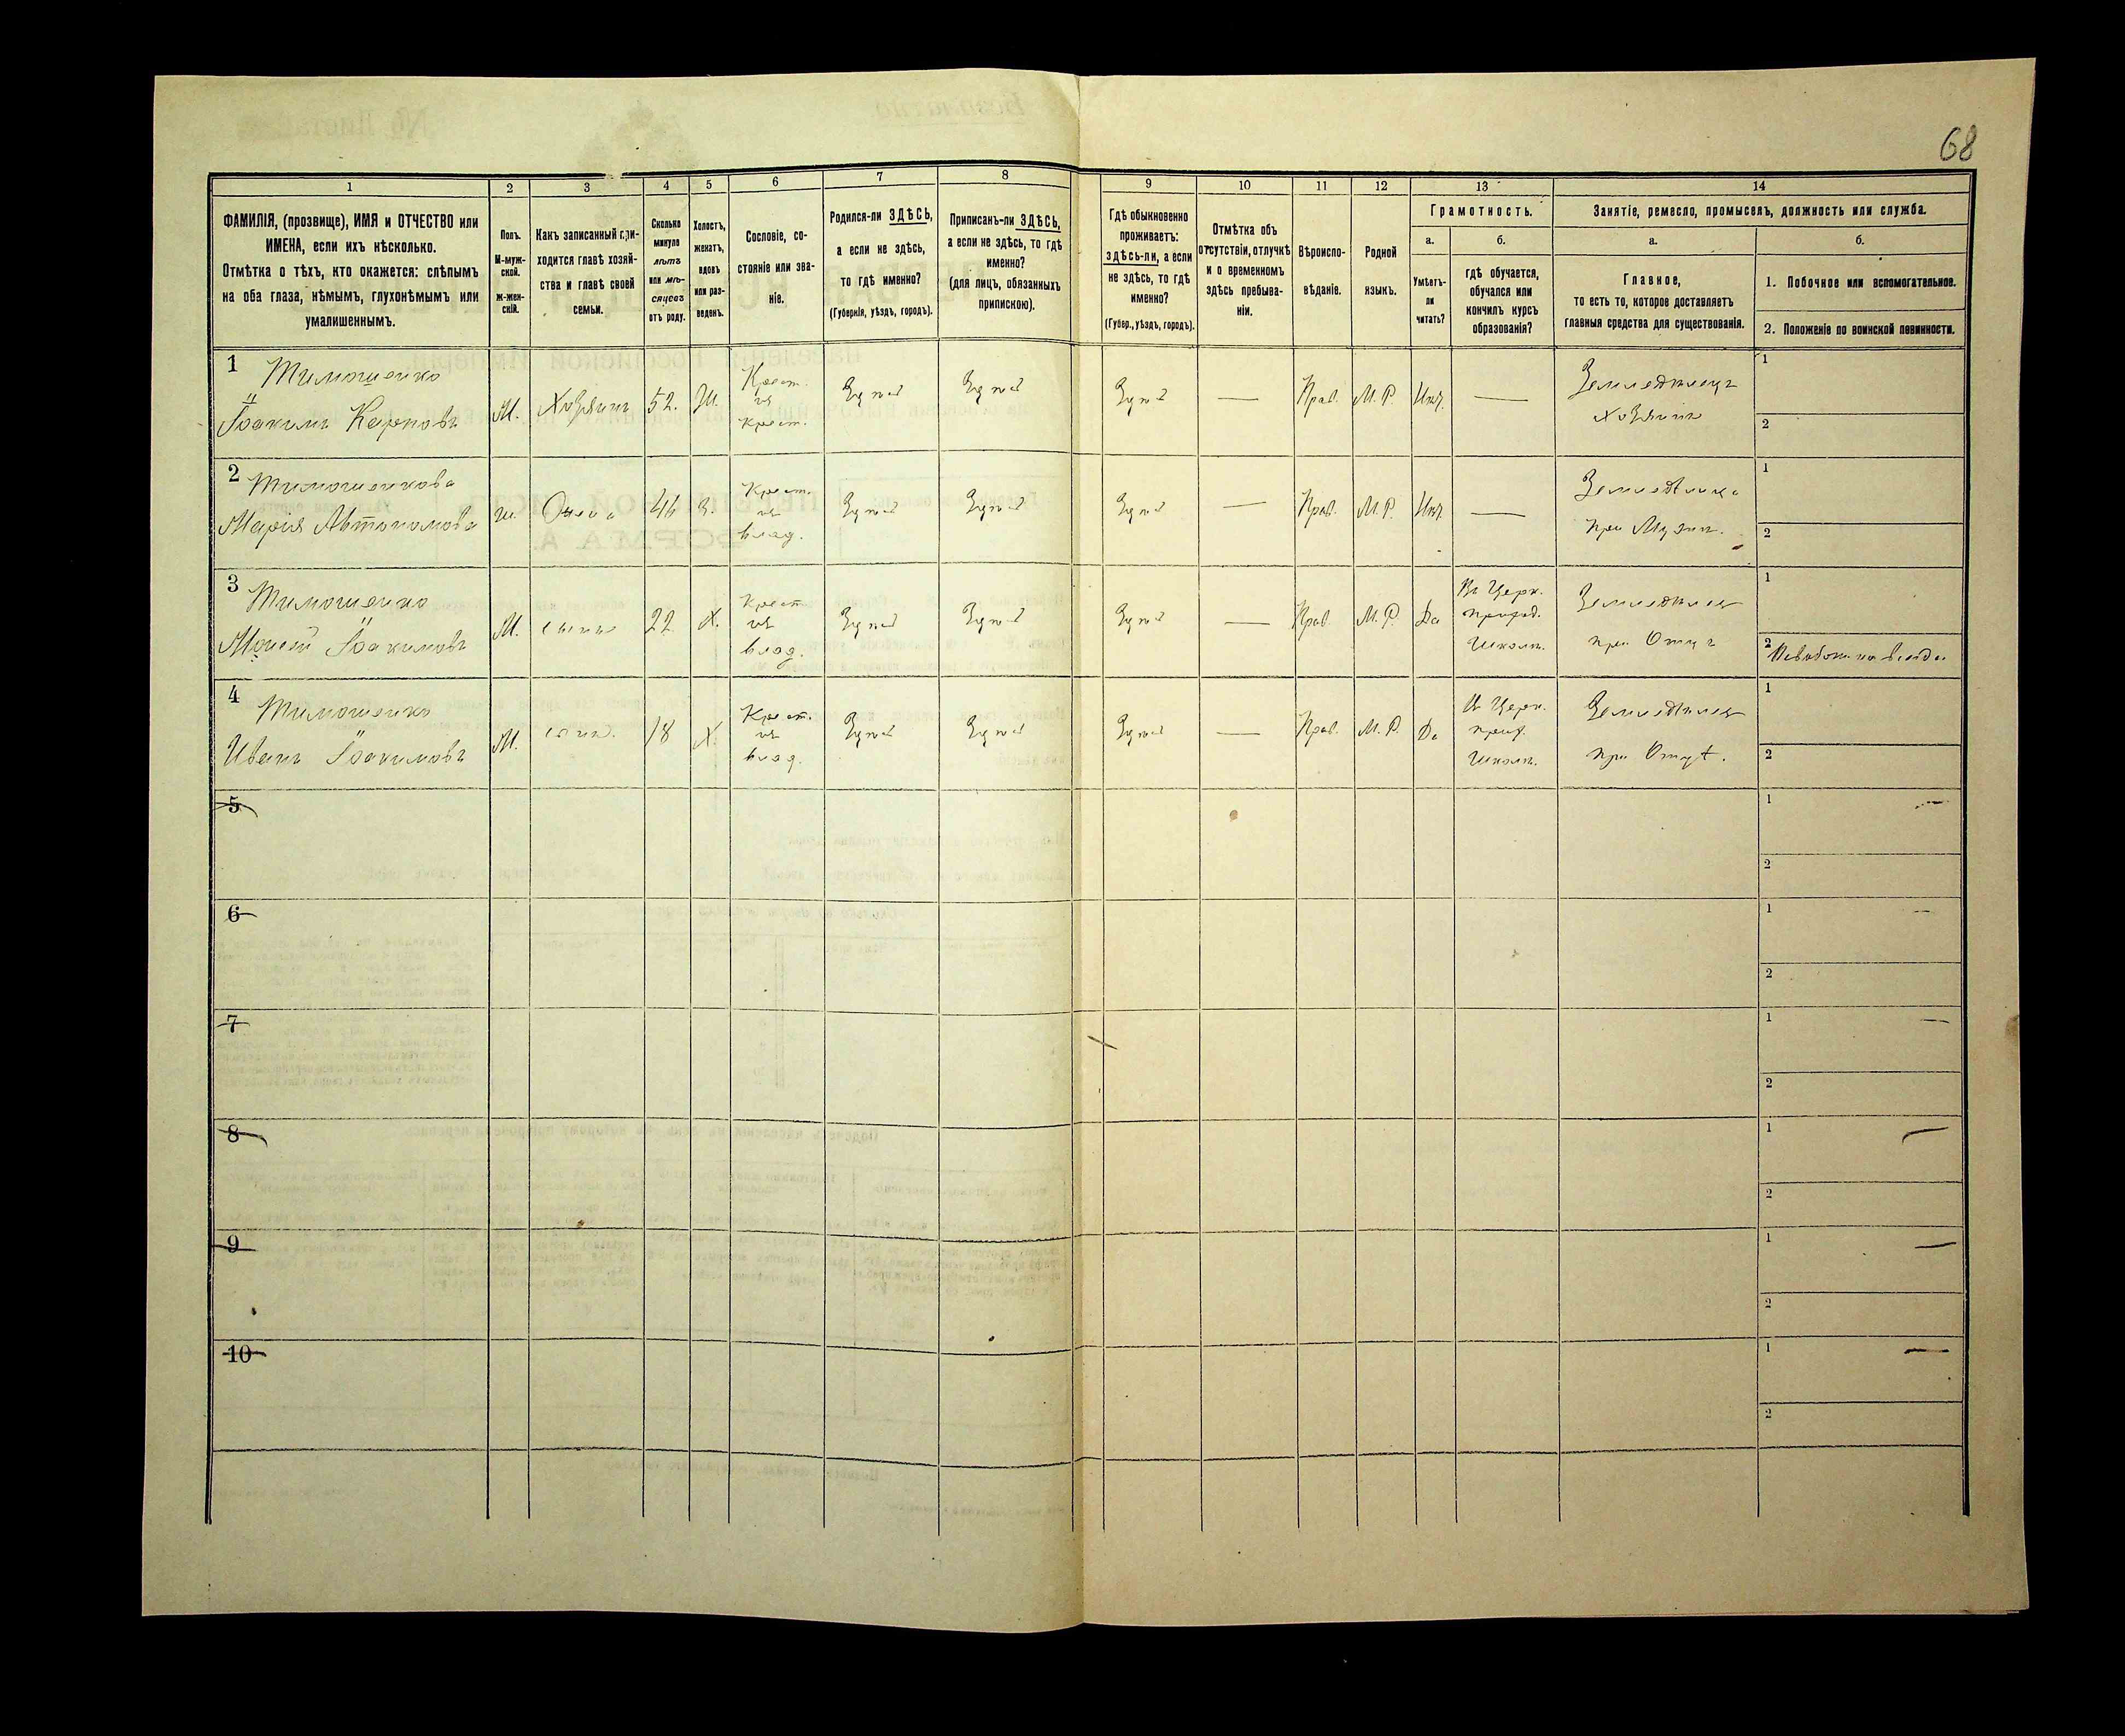 68
1 2 3 4 5 6 7 8 9 10 11 12 13 14
ФАМИЛІЯ, (прозвище), ИМЯ и ОТЧЕСТВО или
ИМЕНА, если ихъ нѣсколько.
Отмѣтка о тѣхъ, кто окажется: слѣпымъ
на оба глаза, нѣмымъ, глухонѣмымъ или
умалишеннымъ.
Полъ.
М-муж-
ской.
ж-жен-
скій.
Какъ записанный при-
ходится главѣ хозяй-
ства и главѣ своей
семьи.
Сколько
минуло
лѣтъ
или мѣ-
сяцевъ
отъ роду.
Холостъ,
женатъ,
вдовъ
или раз-
веденъ.
Сословіе, со-
стояніе или зва-
ніе.
Родился-ли ЗДѢСЬ,
а если не здѣсь,
то гдѣ именно?
(Губернія, уѣздъ, городъ).
Приписанъ-ли ЗДѢСЬ,
а если не здѣсь, то гдѣ
именно?
(для лицъ, обязанныхъ
припискою).
Гдѣ обыкновенно
проживаетъ:
здѣсь-ли, а если
не здѣсь, то гдѣ
именно?
(Губер., уѣздъ, городъ).
Отмѣтка объ
отсутствіи, отлучкѣ
и о временномъ
здѣсь пребыва-
ніи.
Вѣроиспо-
вѣданіе.
Родной
языкъ.
Грамотность.
а.
Умѣетъ-
ли
читать?
б.
гдѣ обучается,
обучался или
кончилъ курсъ
образованія?
Занятіе, ремесло, промыселъ, должность или служба.
а.
Главное,
то есть то, которое доставляетъ
главныя средства для существованія.
б.
1. Побочное или вспомогательное.
2. Положеніе по воинской повинности.
1 Тимошенко
Іоакимъ Карповъ
М.
Хозяинъ
52.
Ж.
Крест.
изъ
крест.
Здѣсь
Здѣсь
Здѣсь
—
Прав.
М. Р.
Нѣт.
—
Земледѣлецъ
хозяинъ
1
2
2 Тимошенкова
Марія Автономова
ж.
Жена
46
З.
Крест.
изъ
влад.
Здѣсь
Здѣсь
Здѣсь
—
Прав.
М. Р.
Нѣт.
—
при Мужѣ.
1
2
3 Тимошенко
Моисей Іоакимовъ
М.
сынъ
22
Х.
Крест.
изъ
влад.
Здѣсь
Здѣсь
Здѣсь
—
Прав.
М. Р.
Да
Въ Церк.
приход.
Школѣ.
при Отцѣ
1
2
4 Тимошенко
Иванъ Іоакимовъ
М.
сынъ.
18
Х.
Крест.
изъ
влад.
Здѣсь
Здѣсь
Здѣсь
—
Прав.
М. Р.
Да
Въ Церк.
прих.
Школѣ.
при Отцѣ.
1
2
5
1
2
6
1
2
7
1
2
8
1
2
9
1
2
10
1
2